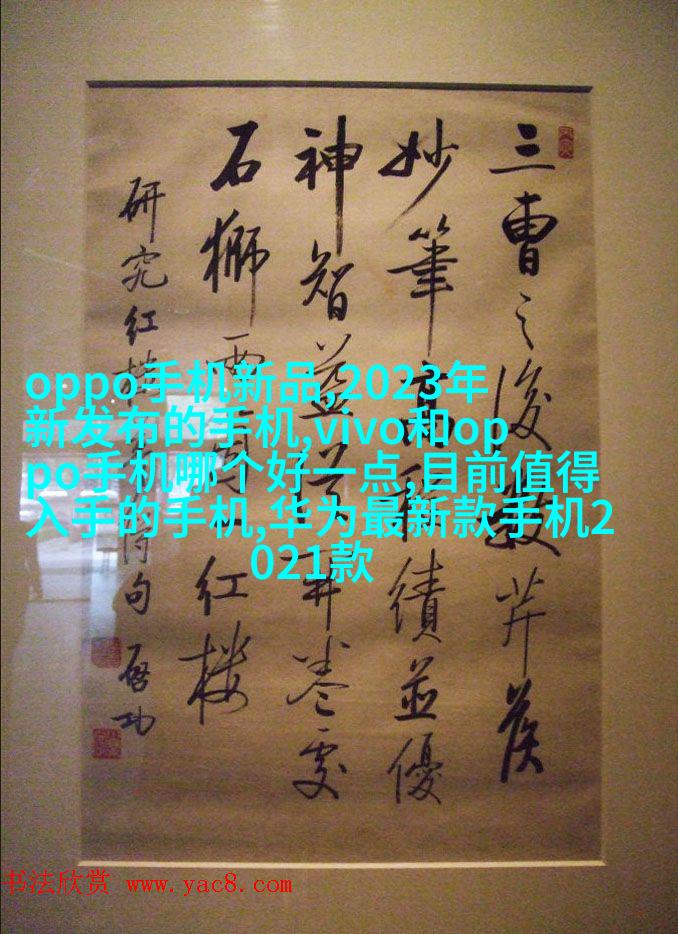 三曹之後數芹侯
妙筆高程績並優
神智益從開卷處
石獅兩紅楼
研究红楼句 啓功
oppo手机新品,2023年
新发布的手机,vivo和op
po手机哪个好一点,目前值得
入手的手机,华为最新款手机2
021款
书法欣赏 www.yac8.com